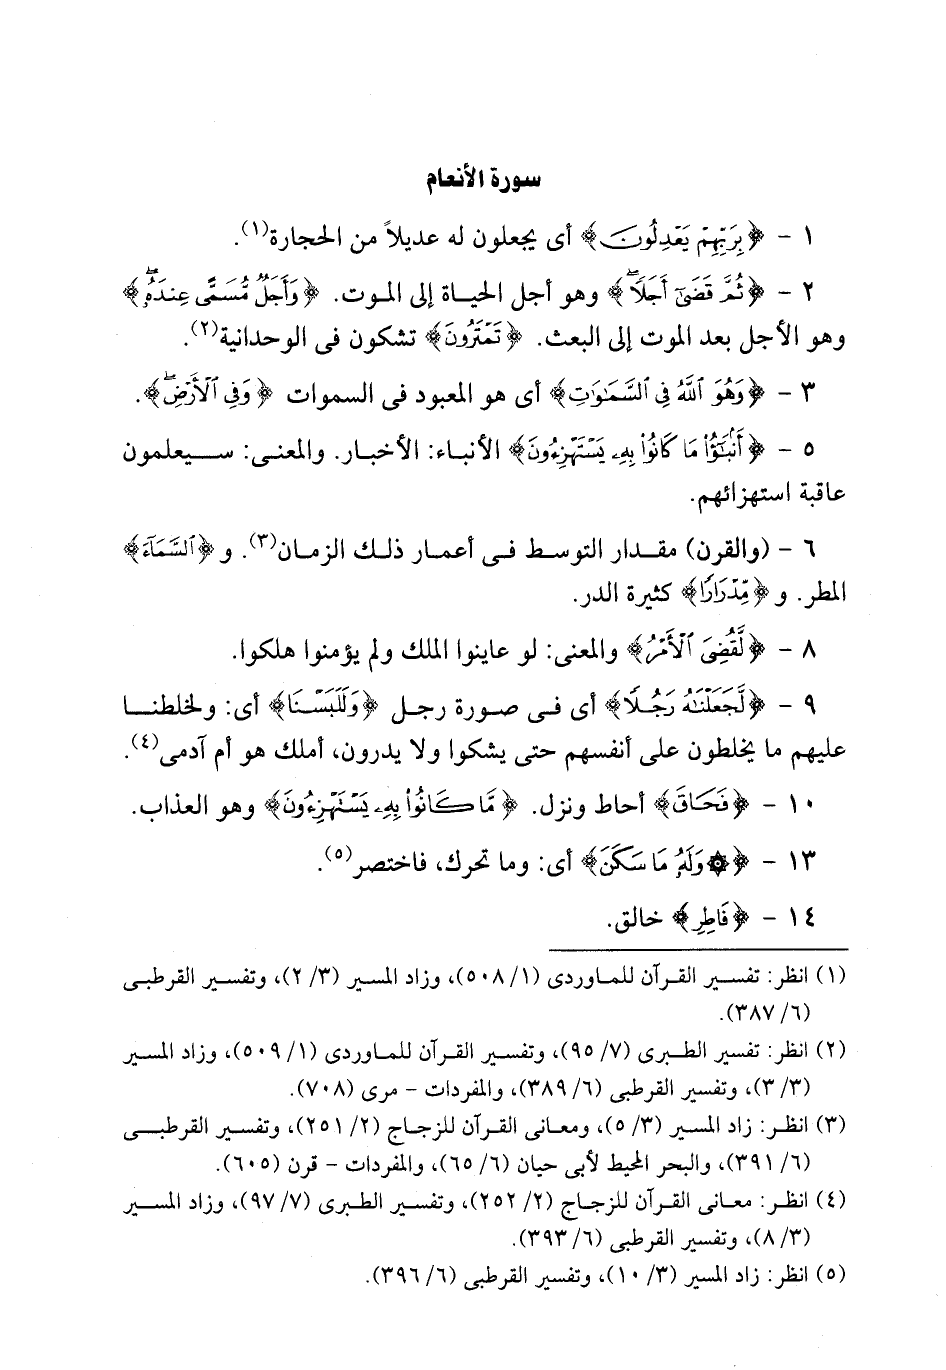 سورة الأنعام
١ - ﴿بِرَبِّهِمْ يَعْدِلُونَ﴾ أى يجعلون له عديلاً من الحجارة(١).
٢ - ﴿ثُمَّ قَضَىٰٓ أَجَلًاۖ﴾ وهو أجل الحياة إلى الموت. ﴿وَأَجَلٌ مُّسَمًّى عِندَهُۥۖ﴾
وهو الأجل بعد الموت إلى البعث. ﴿تَمْتَرُونَ﴾ تشكون فى الوحدانية(٢).
٣ - ﴿وَهُوَ ٱللَّهُ فِى ٱلسَّمَٰوَٰتِ﴾ أى هو المعبود فى السموات ﴿وَفِى ٱلْأَرْضِۖ﴾.
٥ - ﴿أَنۢبَٰٓؤُا۟ مَا كَانُوا۟ بِهِۦ يَسْتَهْزِءُونَ﴾ الأنباء: الأخبار. والمعنى: سيعلمون
عاقبة استهزائهم.
٦ - (والقرن) مقدار التوسط فى أعمار ذلك الزمان(٣). و ﴿ٱلسَّمَآءَ﴾
المطر. و ﴿مِّدْرَارًا﴾ كثيرة الدر.
٨ - ﴿لَّقُضِىَ ٱلْأَمْرُ﴾ والمعنى: لو عاينوا الملك ولم يؤمنوا هلكوا.
٩ - ﴿لَّجَعَلْنَٰهُ رَجُلًا﴾ أى فى صورة رجل ﴿وَلَلَبَسْنَا﴾ أى: ولخلطنا
عليهم ما يخلطون على أنفسهم حتى يشكوا ولا يدرون، أملك هو أم آدمى(٤).
١٠ - ﴿فَحَاقَ﴾ أحاط ونزل. ﴿مَّا كَانُوا۟ بِهِۦ يَسْتَهْزِءُونَ﴾ وهو العذاب.
١٣ - ﴿۞وَلَهُۥ مَا سَكَنَ﴾ أى: وما تحرك، فاختصر(٥).
١٤ - ﴿فَاطِرِ﴾ خالق.
(١) انظر: تفسير القرآن للماوردى (١/ ٥٠٨)، وزاد المسير (٣/ ٢)، وتفسير القرطبى
(٦/ ٣٨٧).
(٢) انظر: تفسير الطبرى (٧/ ٩٥)، وتفسير القرآن للماوردى (١/ ٥٠٩)، وزاد المسير
(٣/ ٣)، وتفسير القرطبى (٦/ ٣٨٩)، والمفردات - مرى (٧٠٨).
(٣) انظر: زاد المسير (٣/ ٥)، ومعانى القرآن للزجاج (٢/ ٢٥١)، وتفسير القرطبى
(٦/ ٣٩١)، والبحر المحيط لأبى حيان (٦/ ٦٥)، والمفردات - قرن (٦٠٥).
(٤) انظر: معانى القرآن للزجاج (٢/ ٢٥٢)، وتفسير الطبرى (٧/ ٩٧)، وزاد المسير
(٣/ ٨)، وتفسير القرطبى (٦/ ٣٩٣).
(٥) انظر: زاد المسير (٣/ ١٠)، وتفسير القرطبى (٦/ ٣٩٦).